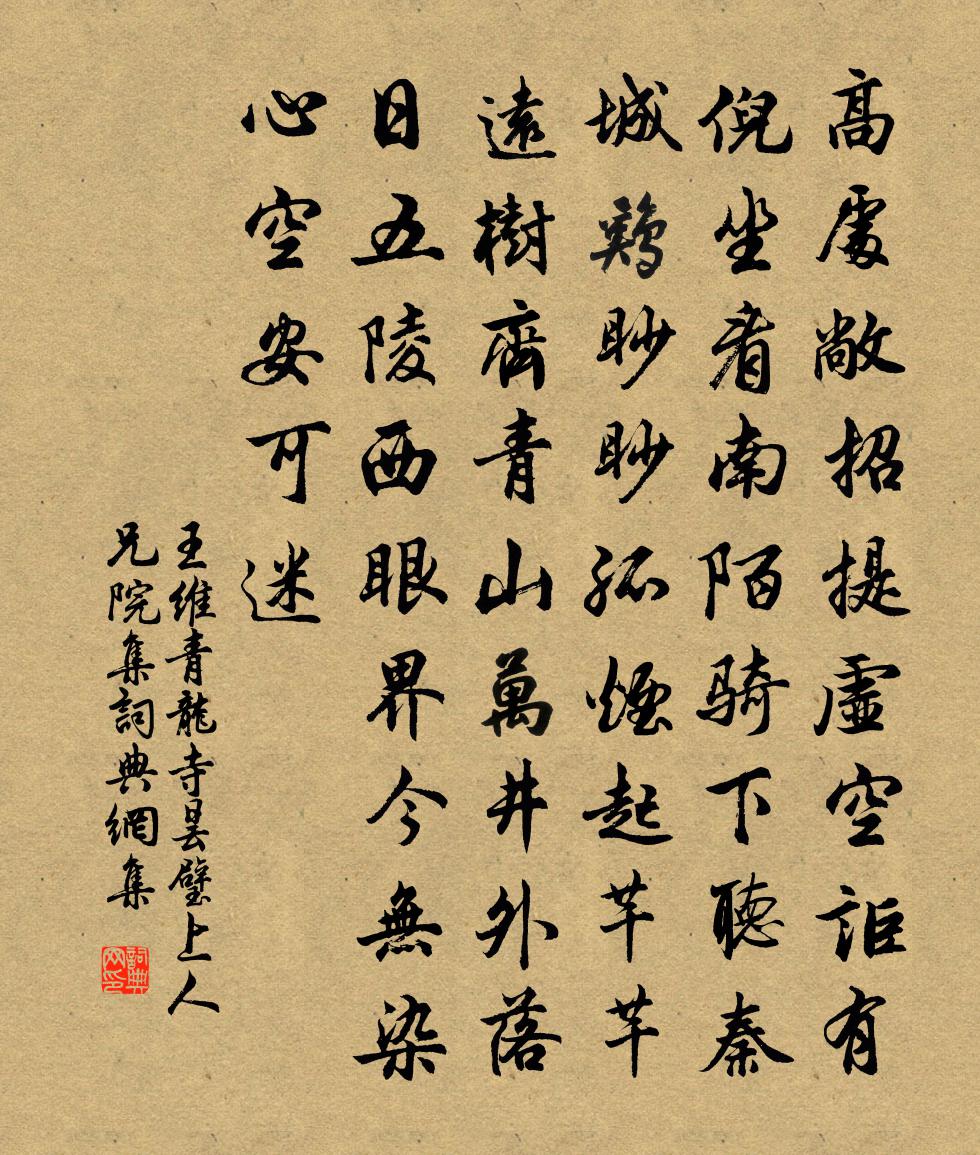 高處敞招提虛空詎有
倪坐看南陌騎下聽秦
城鷄眇眇孤煙起芊芊
遠樹齊青山萬井外落
日五陵西眼界今無染
心空安可迷
王維青龍寺曇璧上人
兄院集詞典網集
詞典网印